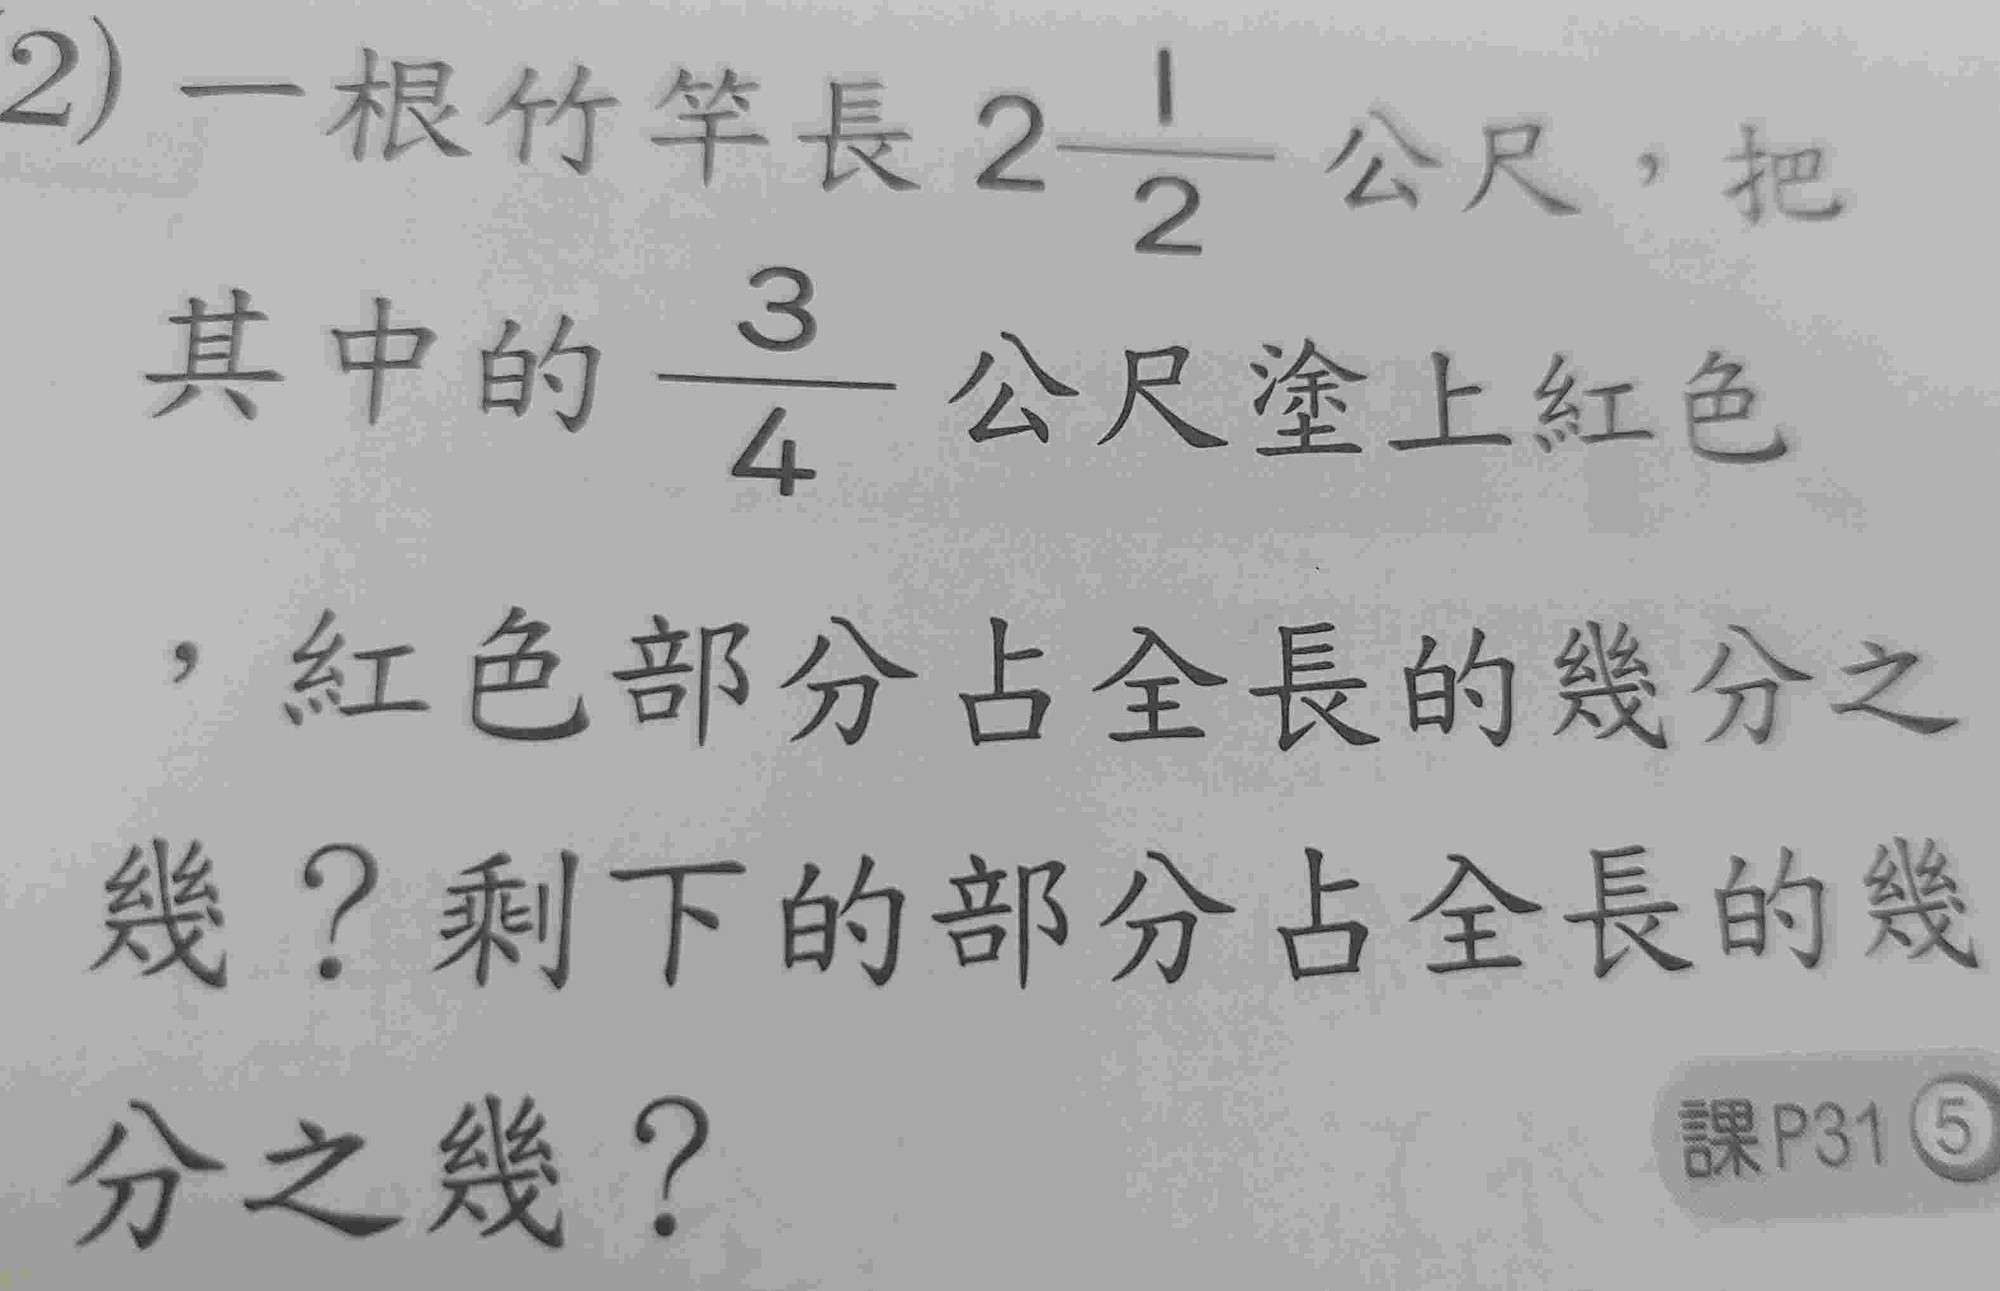 (2) 一根竹竿長 2 1/2 公尺，把
其中的 3/4 公尺塗上紅色
，紅色部分占全長的幾分之
幾？剩下的部分占全長的幾
分之幾？
課P31⑤